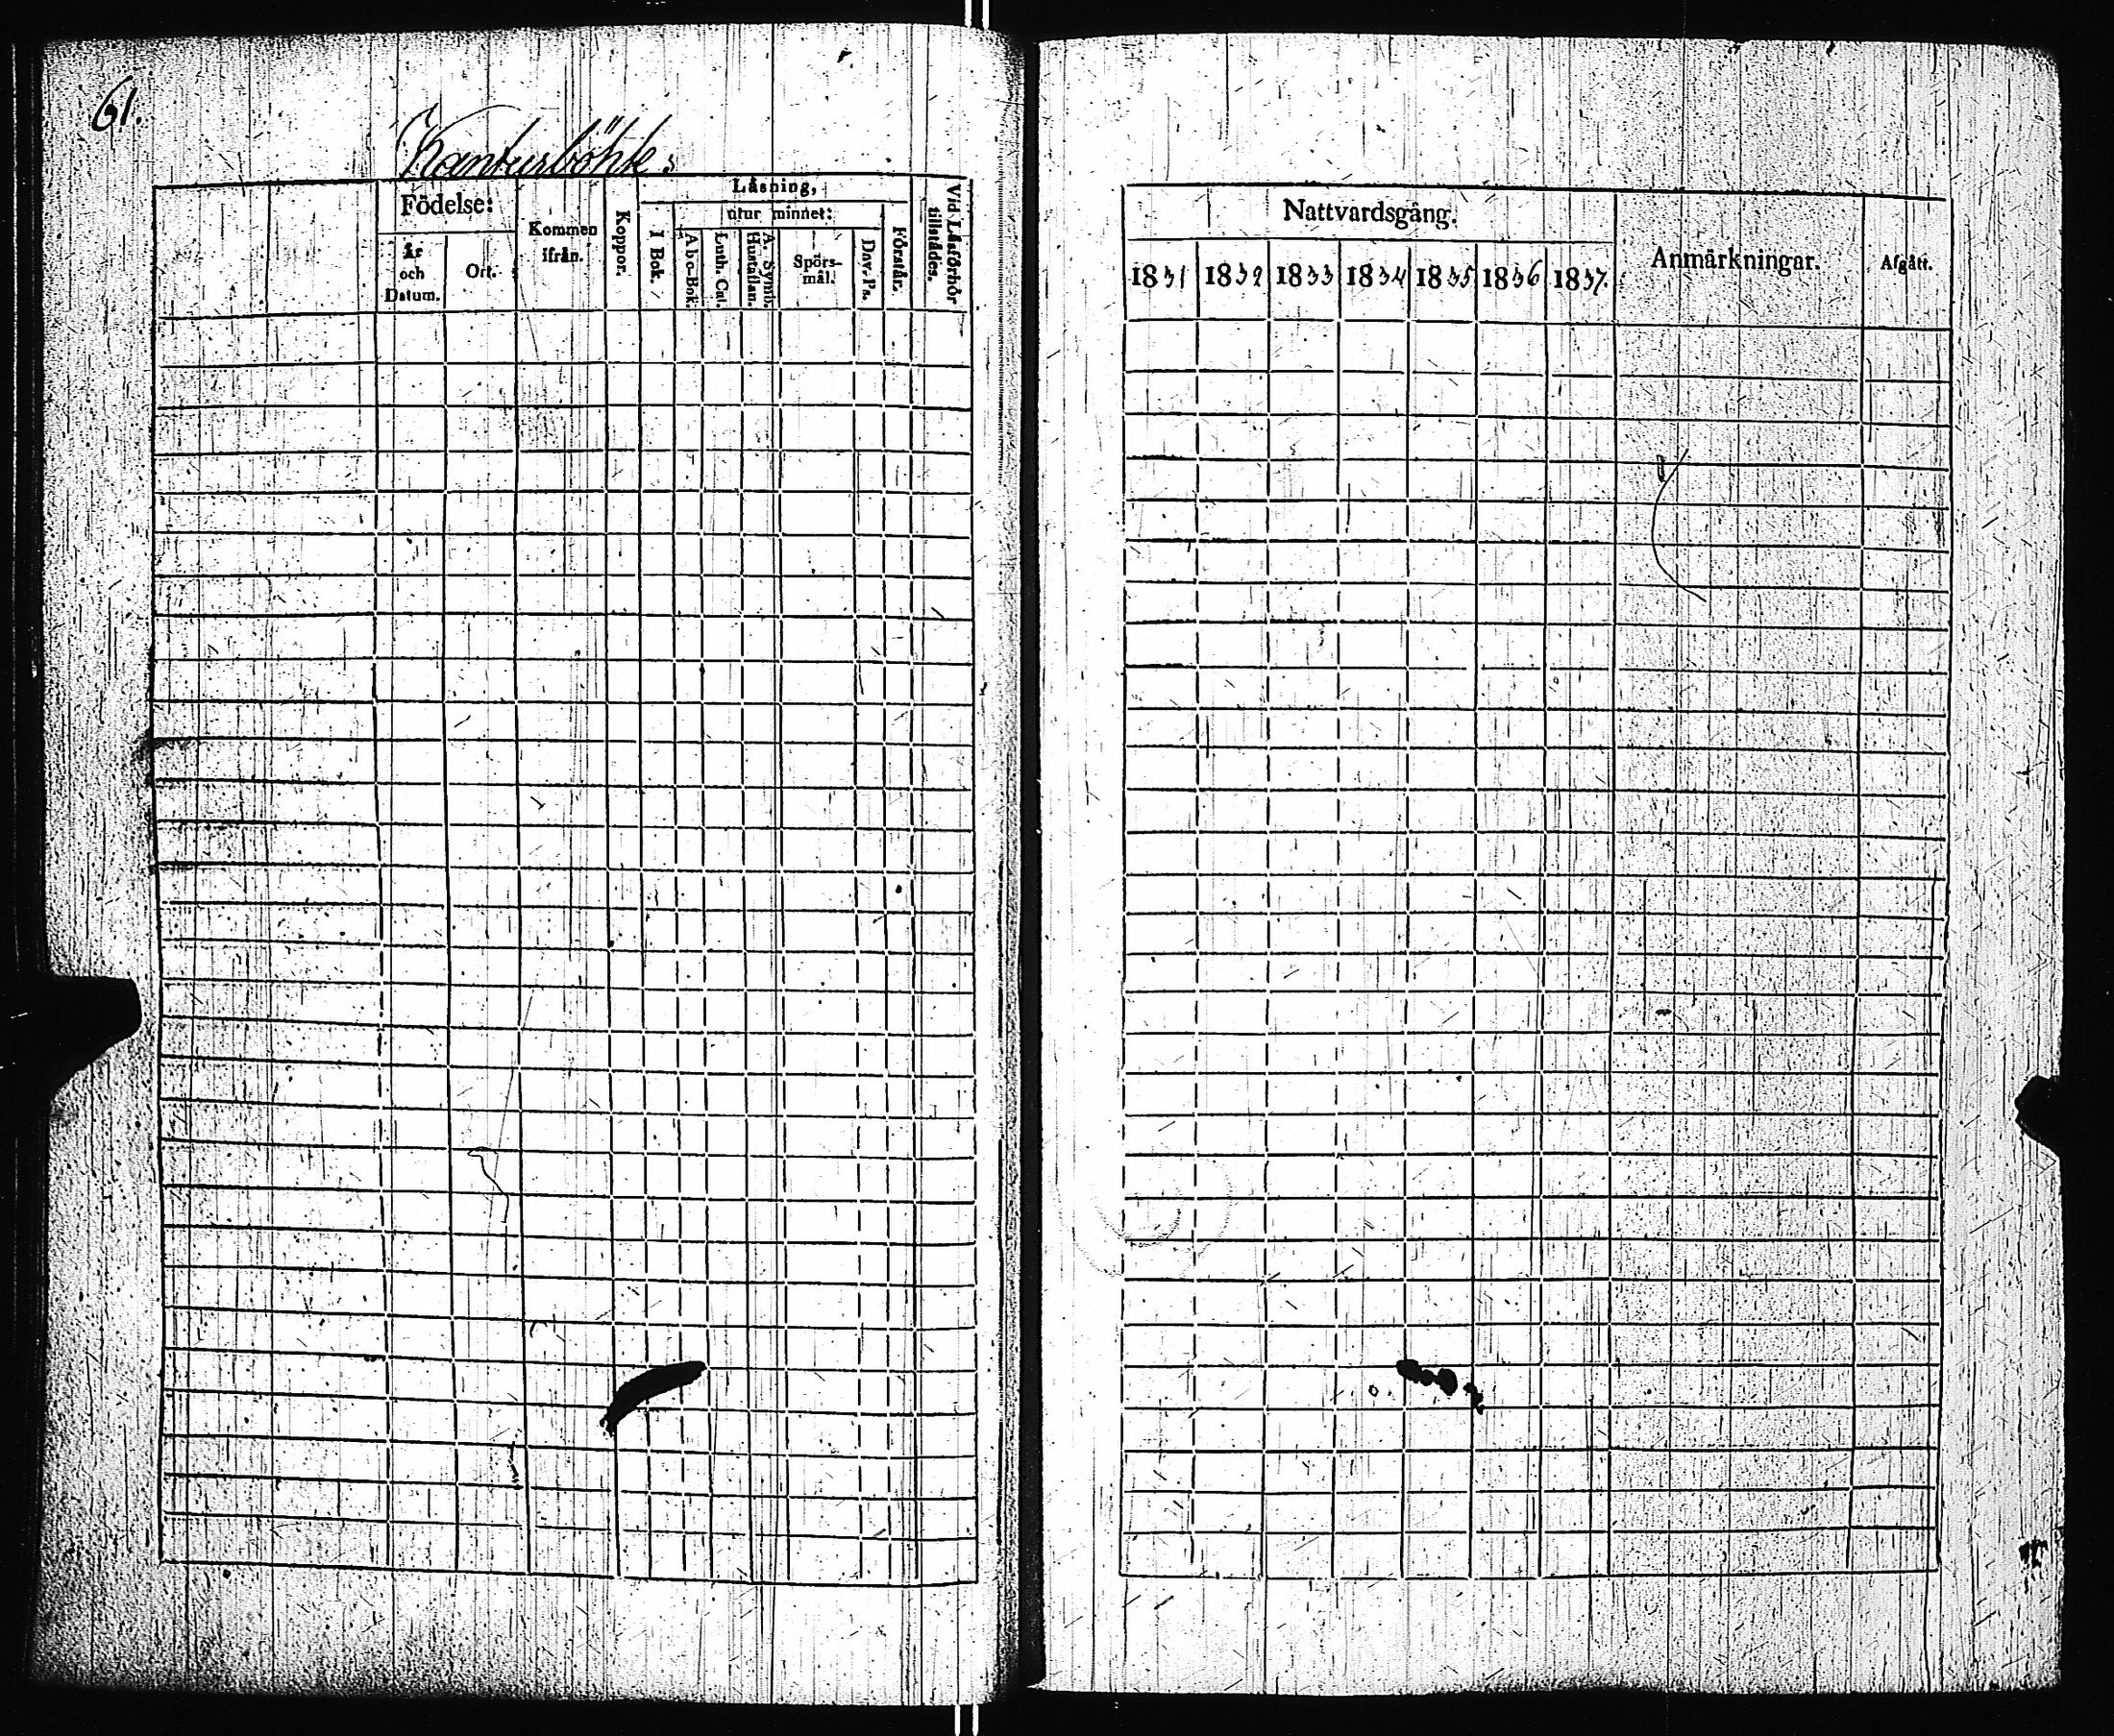 61.
Födelse:
År och Datum.
Ort.
Kommen ifrån.
Koppor.
Läsning,
I Bok.
utur minnet:
A b c-Bok.
Luth. Cat.
A. Symb. Hustaflan.
Spörs-mål.
Dav. Ps.
Förstår.
Vid Läsförhör tillstädes.
Nattvardsgång.
1831 1832 1833 1834 1835 1836 1837.
Anmärkningar.
Afgått.